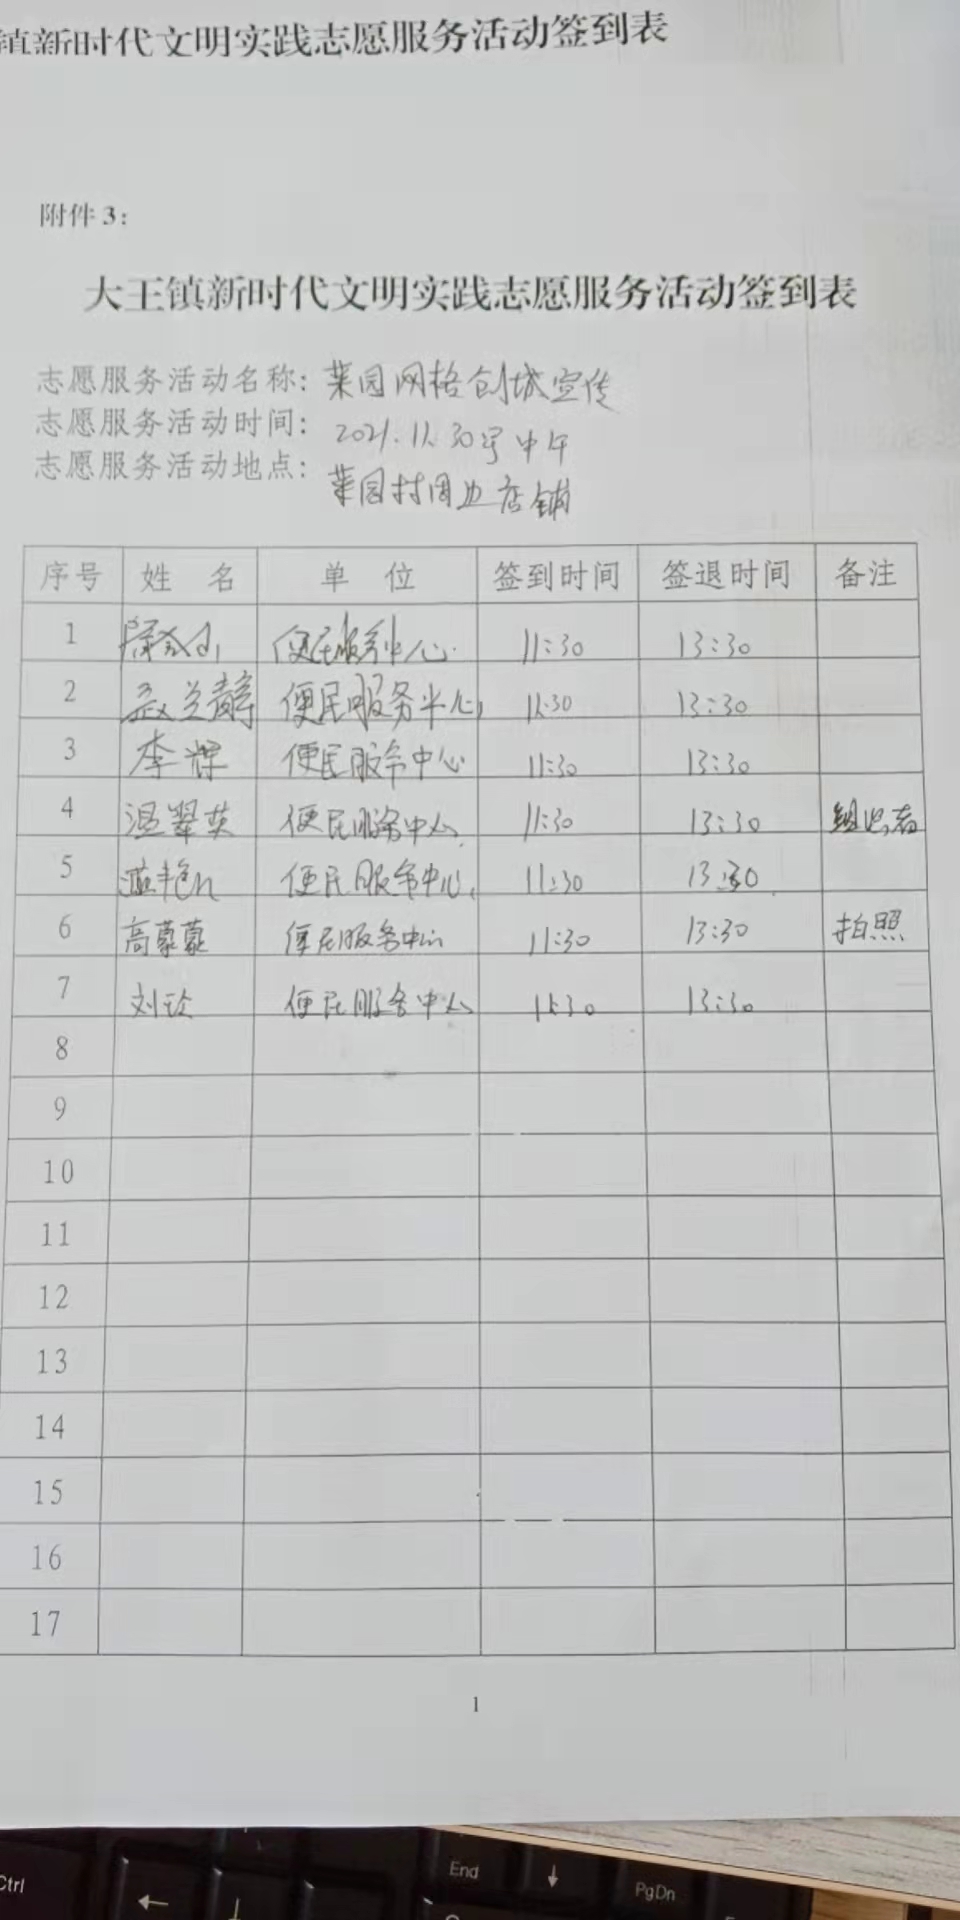 镇新时代文明实践志愿服务活动签到表
附件 3：
大王镇新时代文明实践志愿服务活动签到表
志愿服务活动名称：菜园网格创城宣传
志愿服务活动时间：2021.11.30号中午
志愿服务活动地点：菜园村周边店铺
序号 姓 名 单 位 签到时间 签退时间 备注
1 便民服务中心 11:30 13:30
2 便民服务中心 11:30 13:30
3 李辉 便民服务中心 11:30 13:30
4 温翠英 便民服务中心 11:30 13:30 组织者
5 便民服务中心 11:30 13:30
6 高蒙蒙 便民服务中心 11:30 13:30 拍照
7 刘玲 便民服务中心 11:30 13:30
8
9
10
11
12
13
14
15
16
17
1
Ctrl
End
PgDn